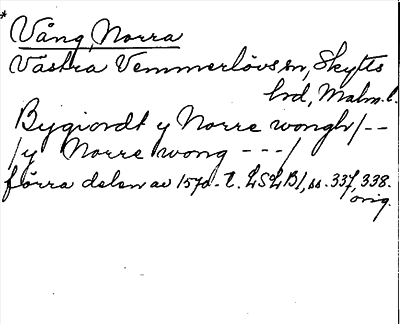 * Vång, Norra
Västra Vemmerlövs sn, Skytts
hd, Malm. l.
Bygiordt y Norre wongh/--
/y Norre wong ---/
förra delen av 1570-t. LSLB1, ss. 337, 338.
orig.